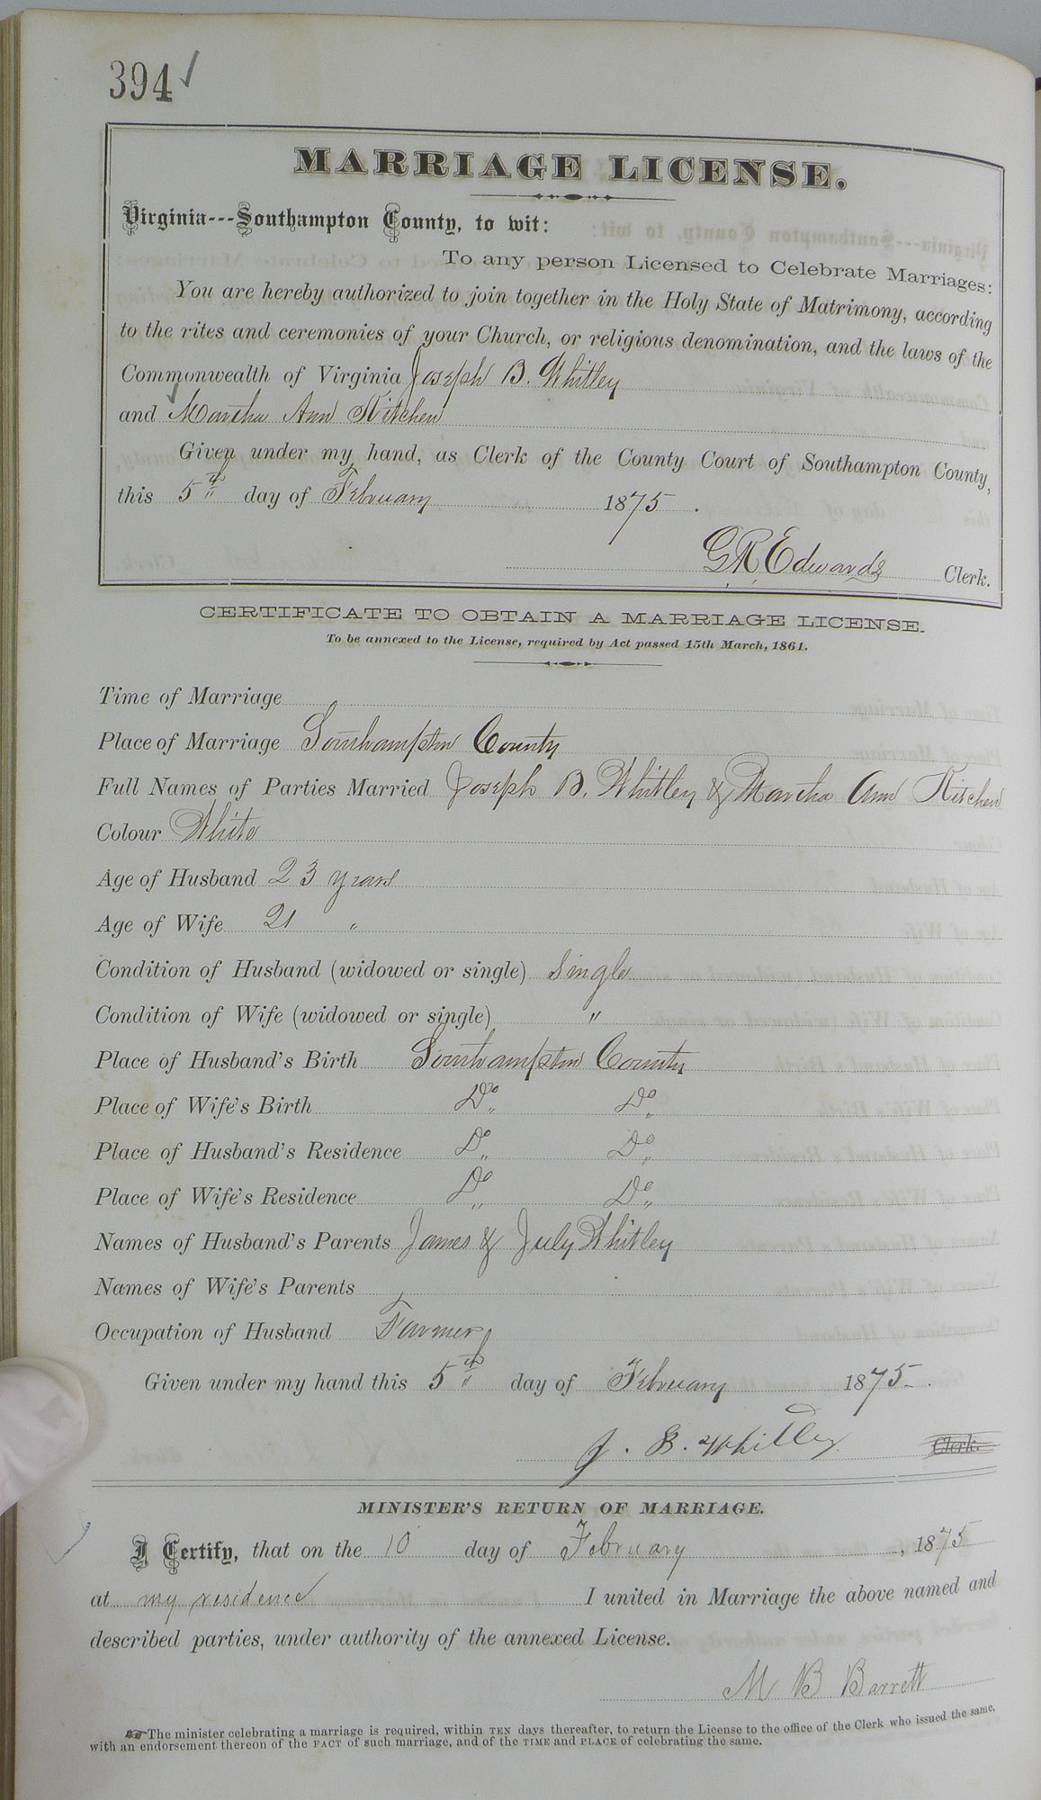 394 ✓
MARRIAGE LICENSE.
Virginia---Southampton County, to wit:
To any person Licensed to Celebrate Marriages:
You are hereby authorized to join together in the Holy State of Matrimony, according
to the rites and ceremonies of your Church, or religious denomination, and the laws of the
Commonwealth of Virginia Joseph B. Whitley
and Martha Ann Kitchen
Given under my hand, as Clerk of the County Court of Southampton County,
this 5th day of February 1875.
G R Edwards Clerk.
CERTIFICATE TO OBTAIN A MARRIAGE LICENSE.
To be annexed to the License, required by Act passed 15th March, 1861.
Time of Marriage
Place of Marriage Southampton County
Full Names of Parties Married Joseph B. Whitley & Martha Ann Kitchen
Colour White
Age of Husband 23 years
Age of Wife 21 "
Condition of Husband (widowed or single) Single
Condition of Wife (widowed or single) "
Place of Husband's Birth Southampton County
Place of Wife's Birth Do Do
Place of Husband's Residence Do Do
Place of Wife's Residence Do Do
Names of Husband's Parents James & July Whitley
Names of Wife's Parents
Occupation of Husband Farmer
Given under my hand this 5th day of February 1875.
J. B. Whitley Clerk.
MINISTER'S RETURN OF MARRIAGE.
I Certify, that on the 10 day of February, 1875
at my residence I united in Marriage the above named and
described parties, under authority of the annexed License.
M B Barrett
☞The minister celebrating a marriage is required, within TEN days thereafter, to return the License to the office of the Clerk who issued the same,
with an endorsement thereon of the FACT of such marriage, and of the TIME and PLACE of celebrating the same.